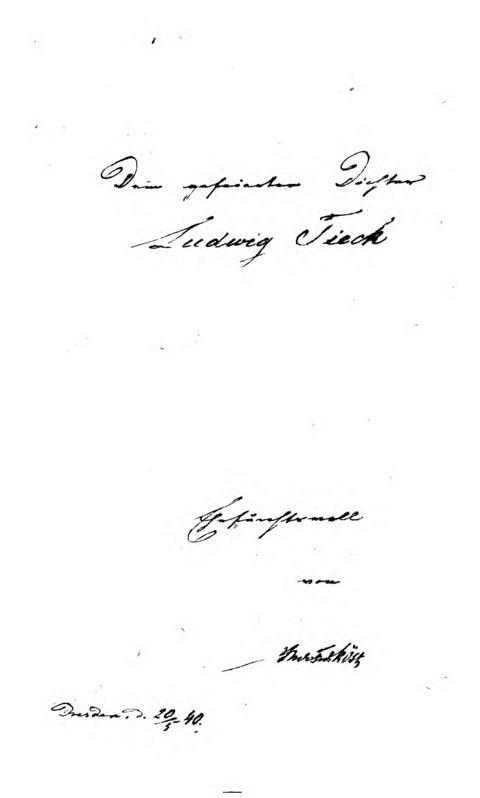 Dem gefeierten Dichter
Ludwig Tieck
Ehrfurchtsvoll
von
Dresden. d. 20/5 40.